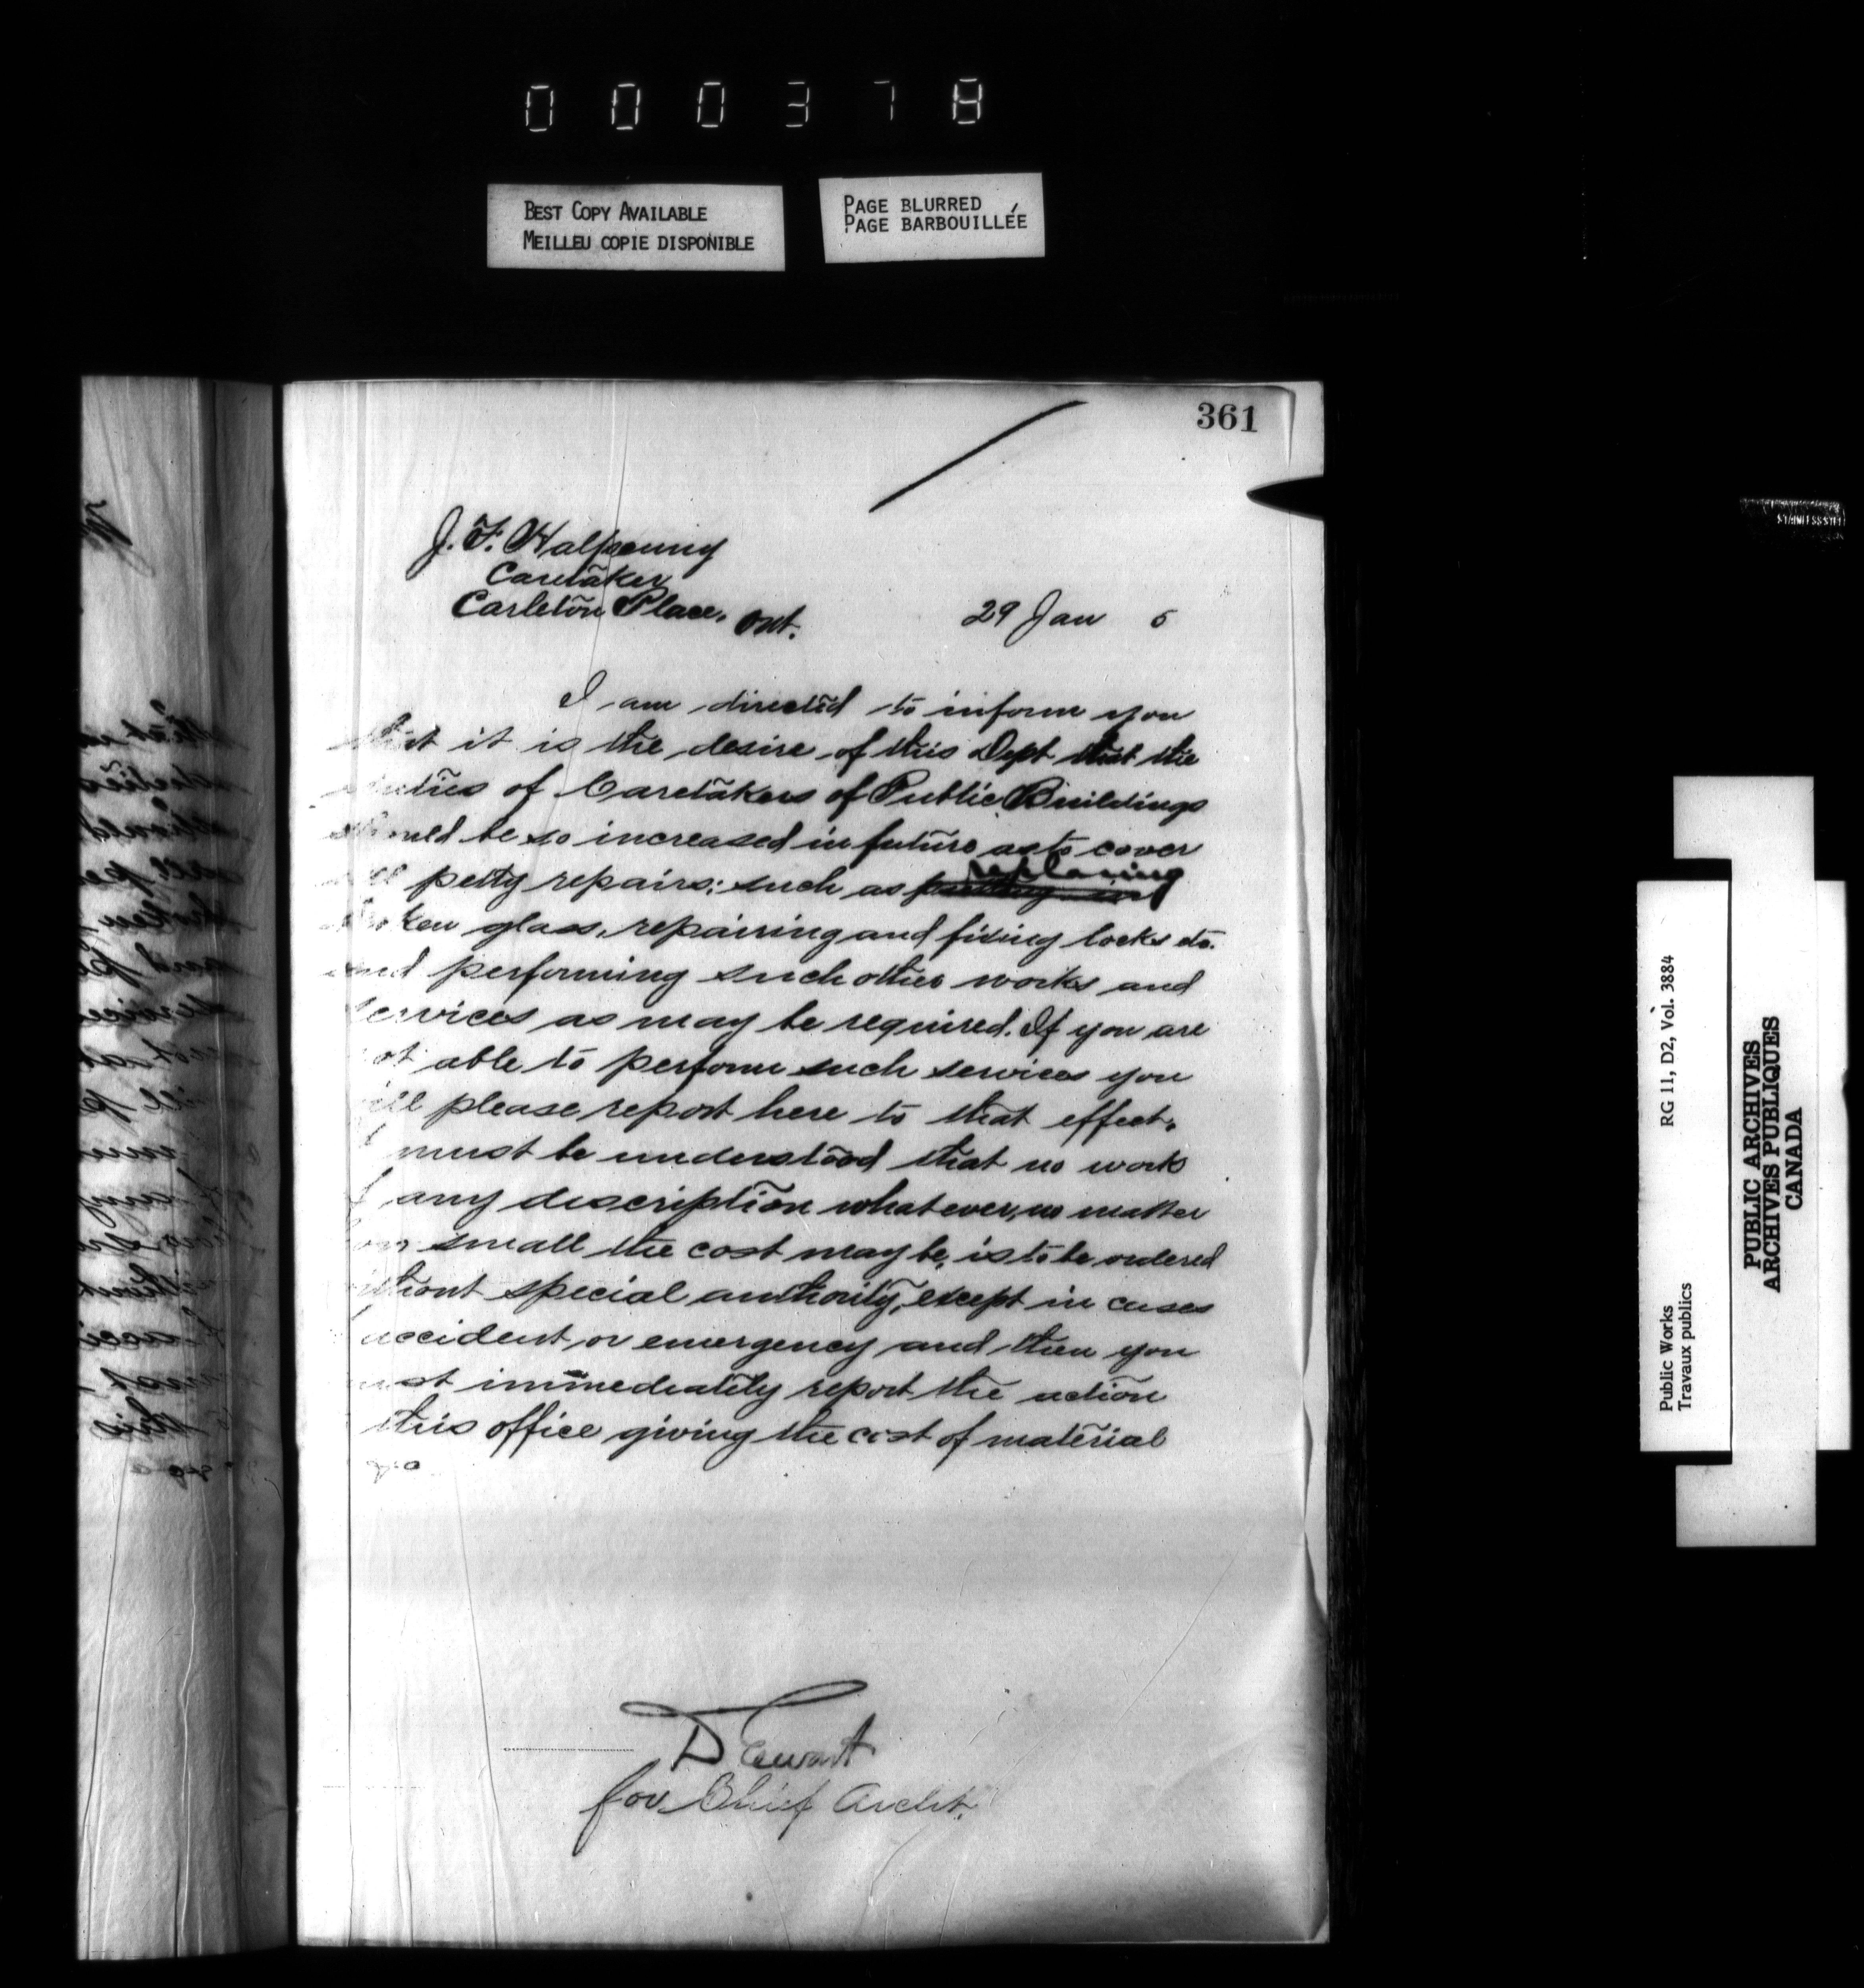 000378
BEST COPY AVAILABLE
MEILLEU COPIE DISPONIBLE
PAGE BLURRED
PAGE BARBOUILLÉE
361
J. F. Halfpenny
Caretaker
Carleton Place, Ont.
29 Jan 5
I am directed to inform you
that it is the desire of this Dept that the
duties of Caretakers of Public Buildings
should be so increased in future as to cover
all petty repairs; such as putting in replacing
broken glass, repairing and fixing locks &c.
and performing such other works and
services as may be required. If you are
not able to perform such services you
will please report here to that effect.
must be understood that no work
any description whatever, no matter
how small the cost may be, is to be ordered
without special authority, except in cases
accident or emergency and then you
must immediately report the action
this office giving the cost of material
D Ewart
for Chief Archt.
RG 11, D2, Vol. 3884
Public Works
Travaux publics
PUBLIC ARCHIVES
ARCHIVES PUBLIQUES
CANADA